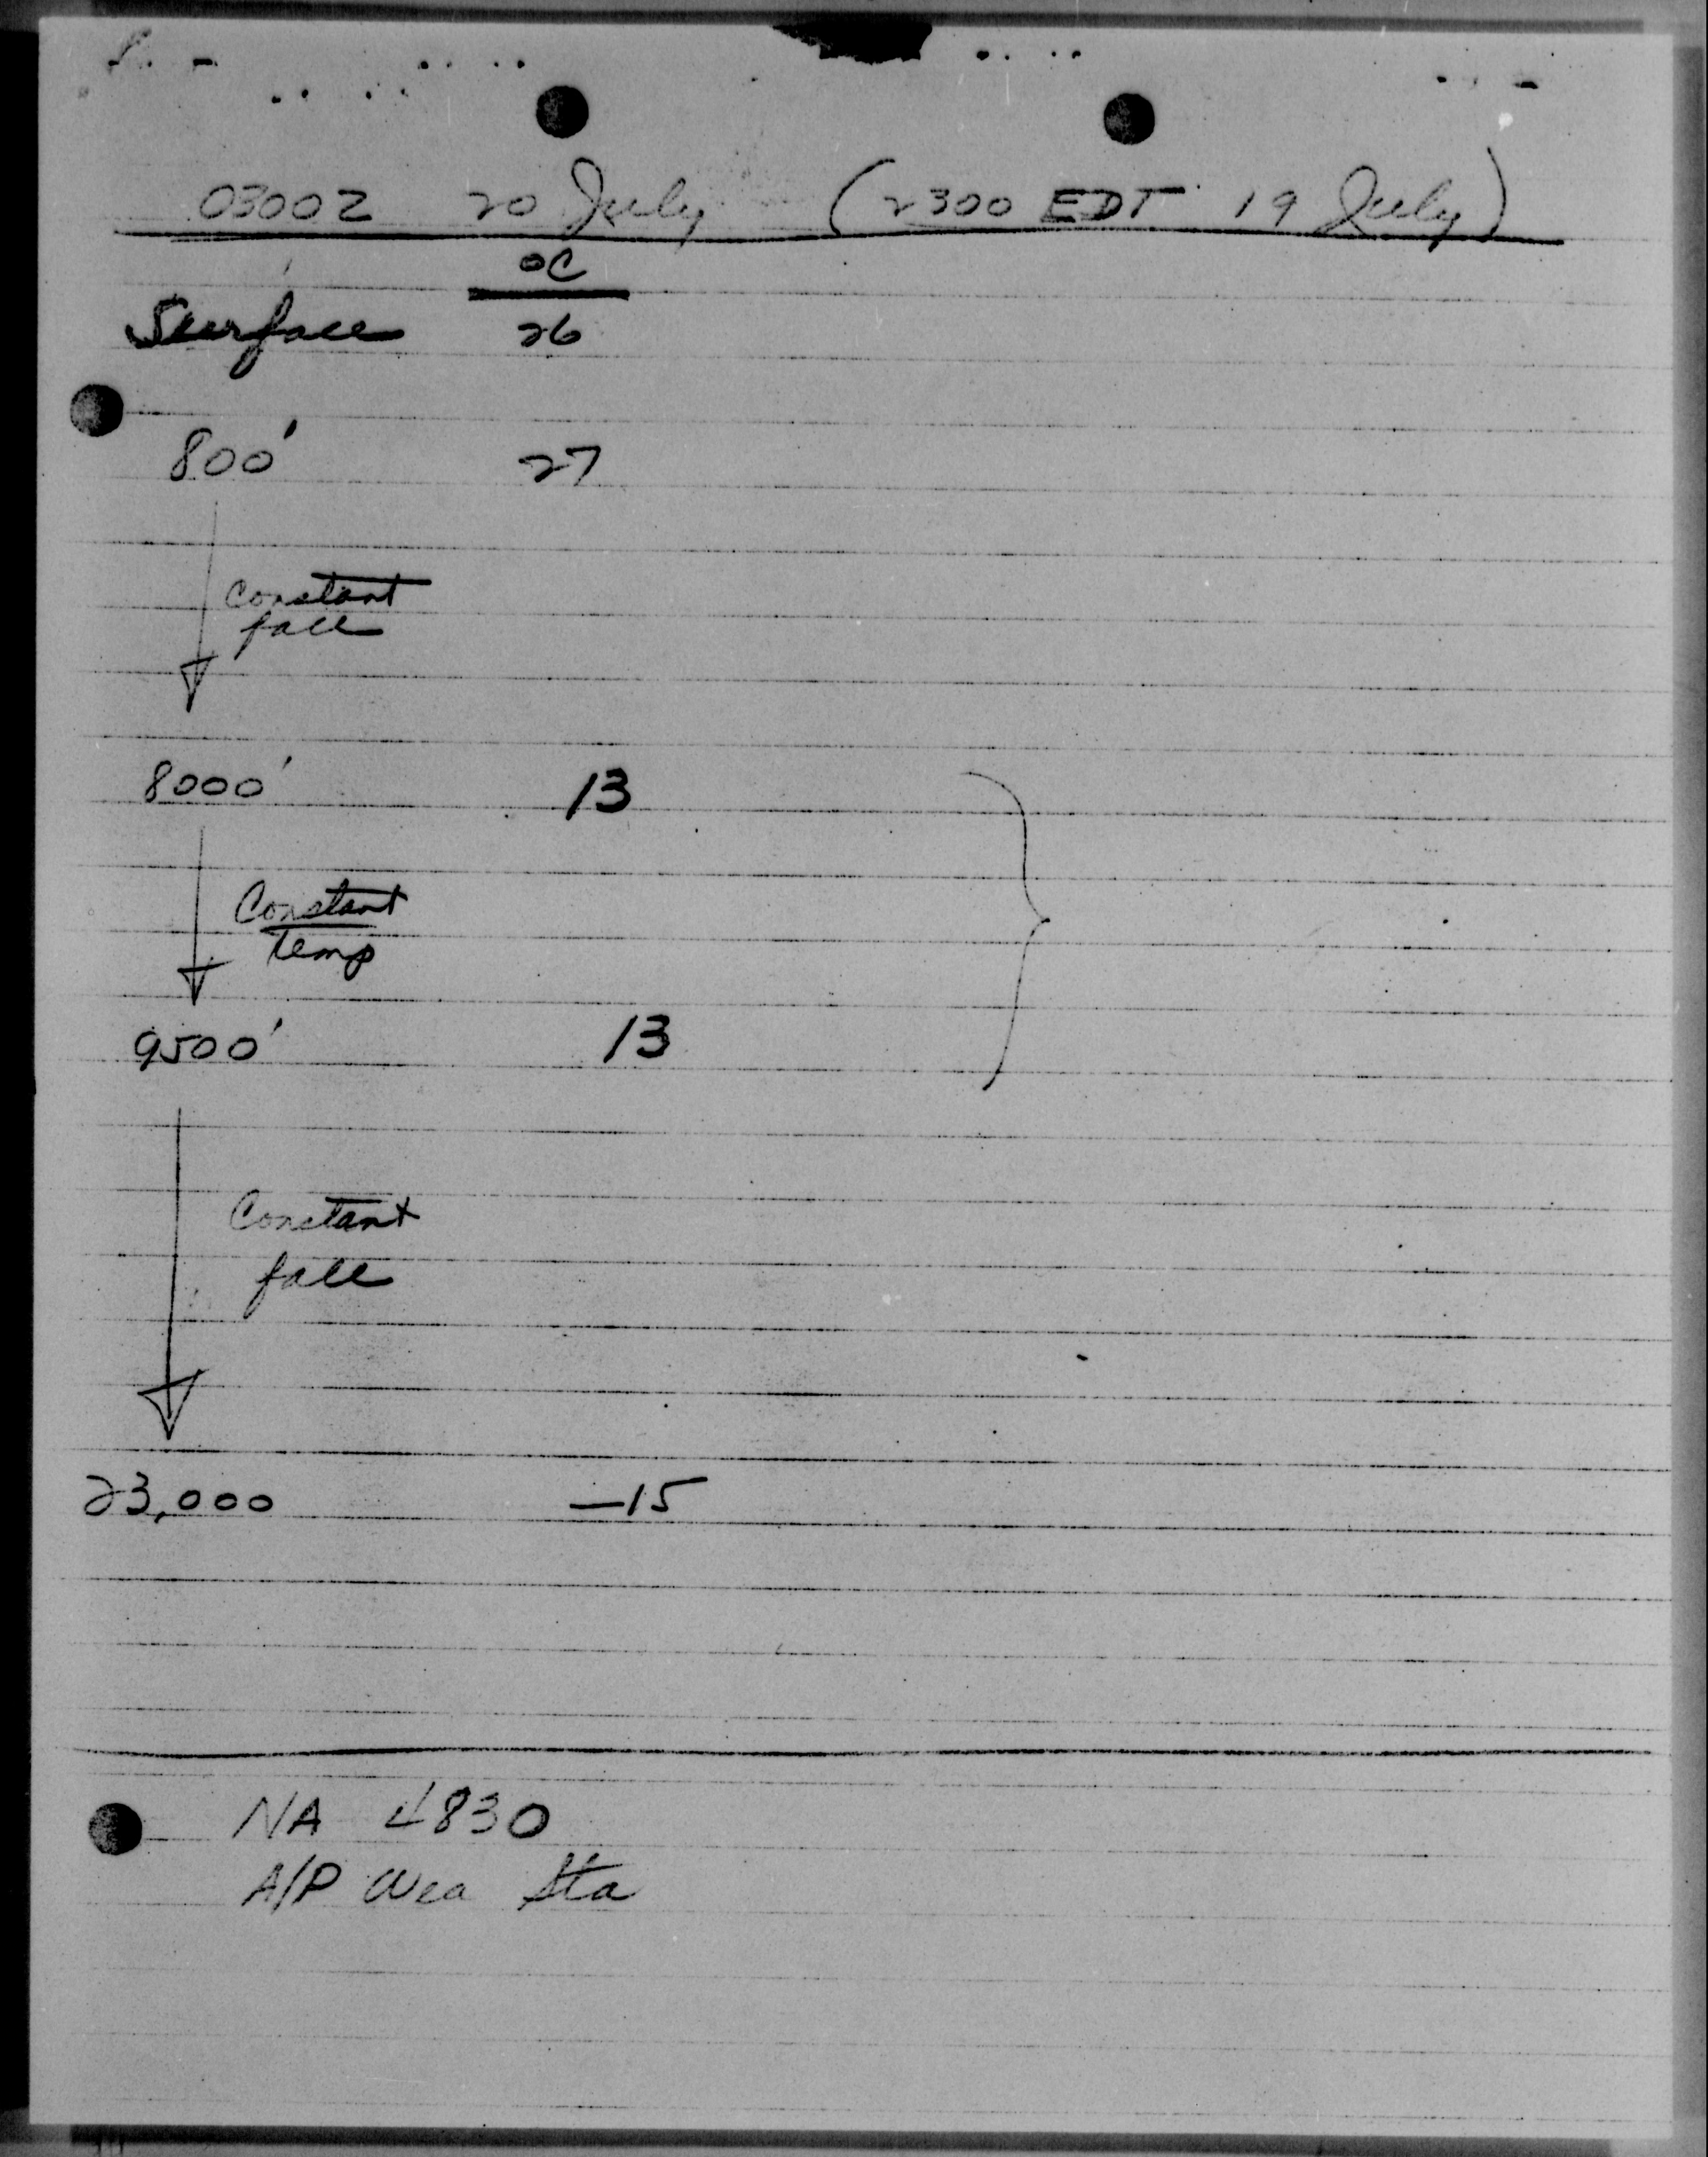 0300Z 20 July (2300 EDT 19 July)
°C
Surface 26
800' 27
constant
fall
8000' 13
Constant
Temp
9500' 13
Constant
fall
23,000 —15
NA 4830
A/P Wea Sta